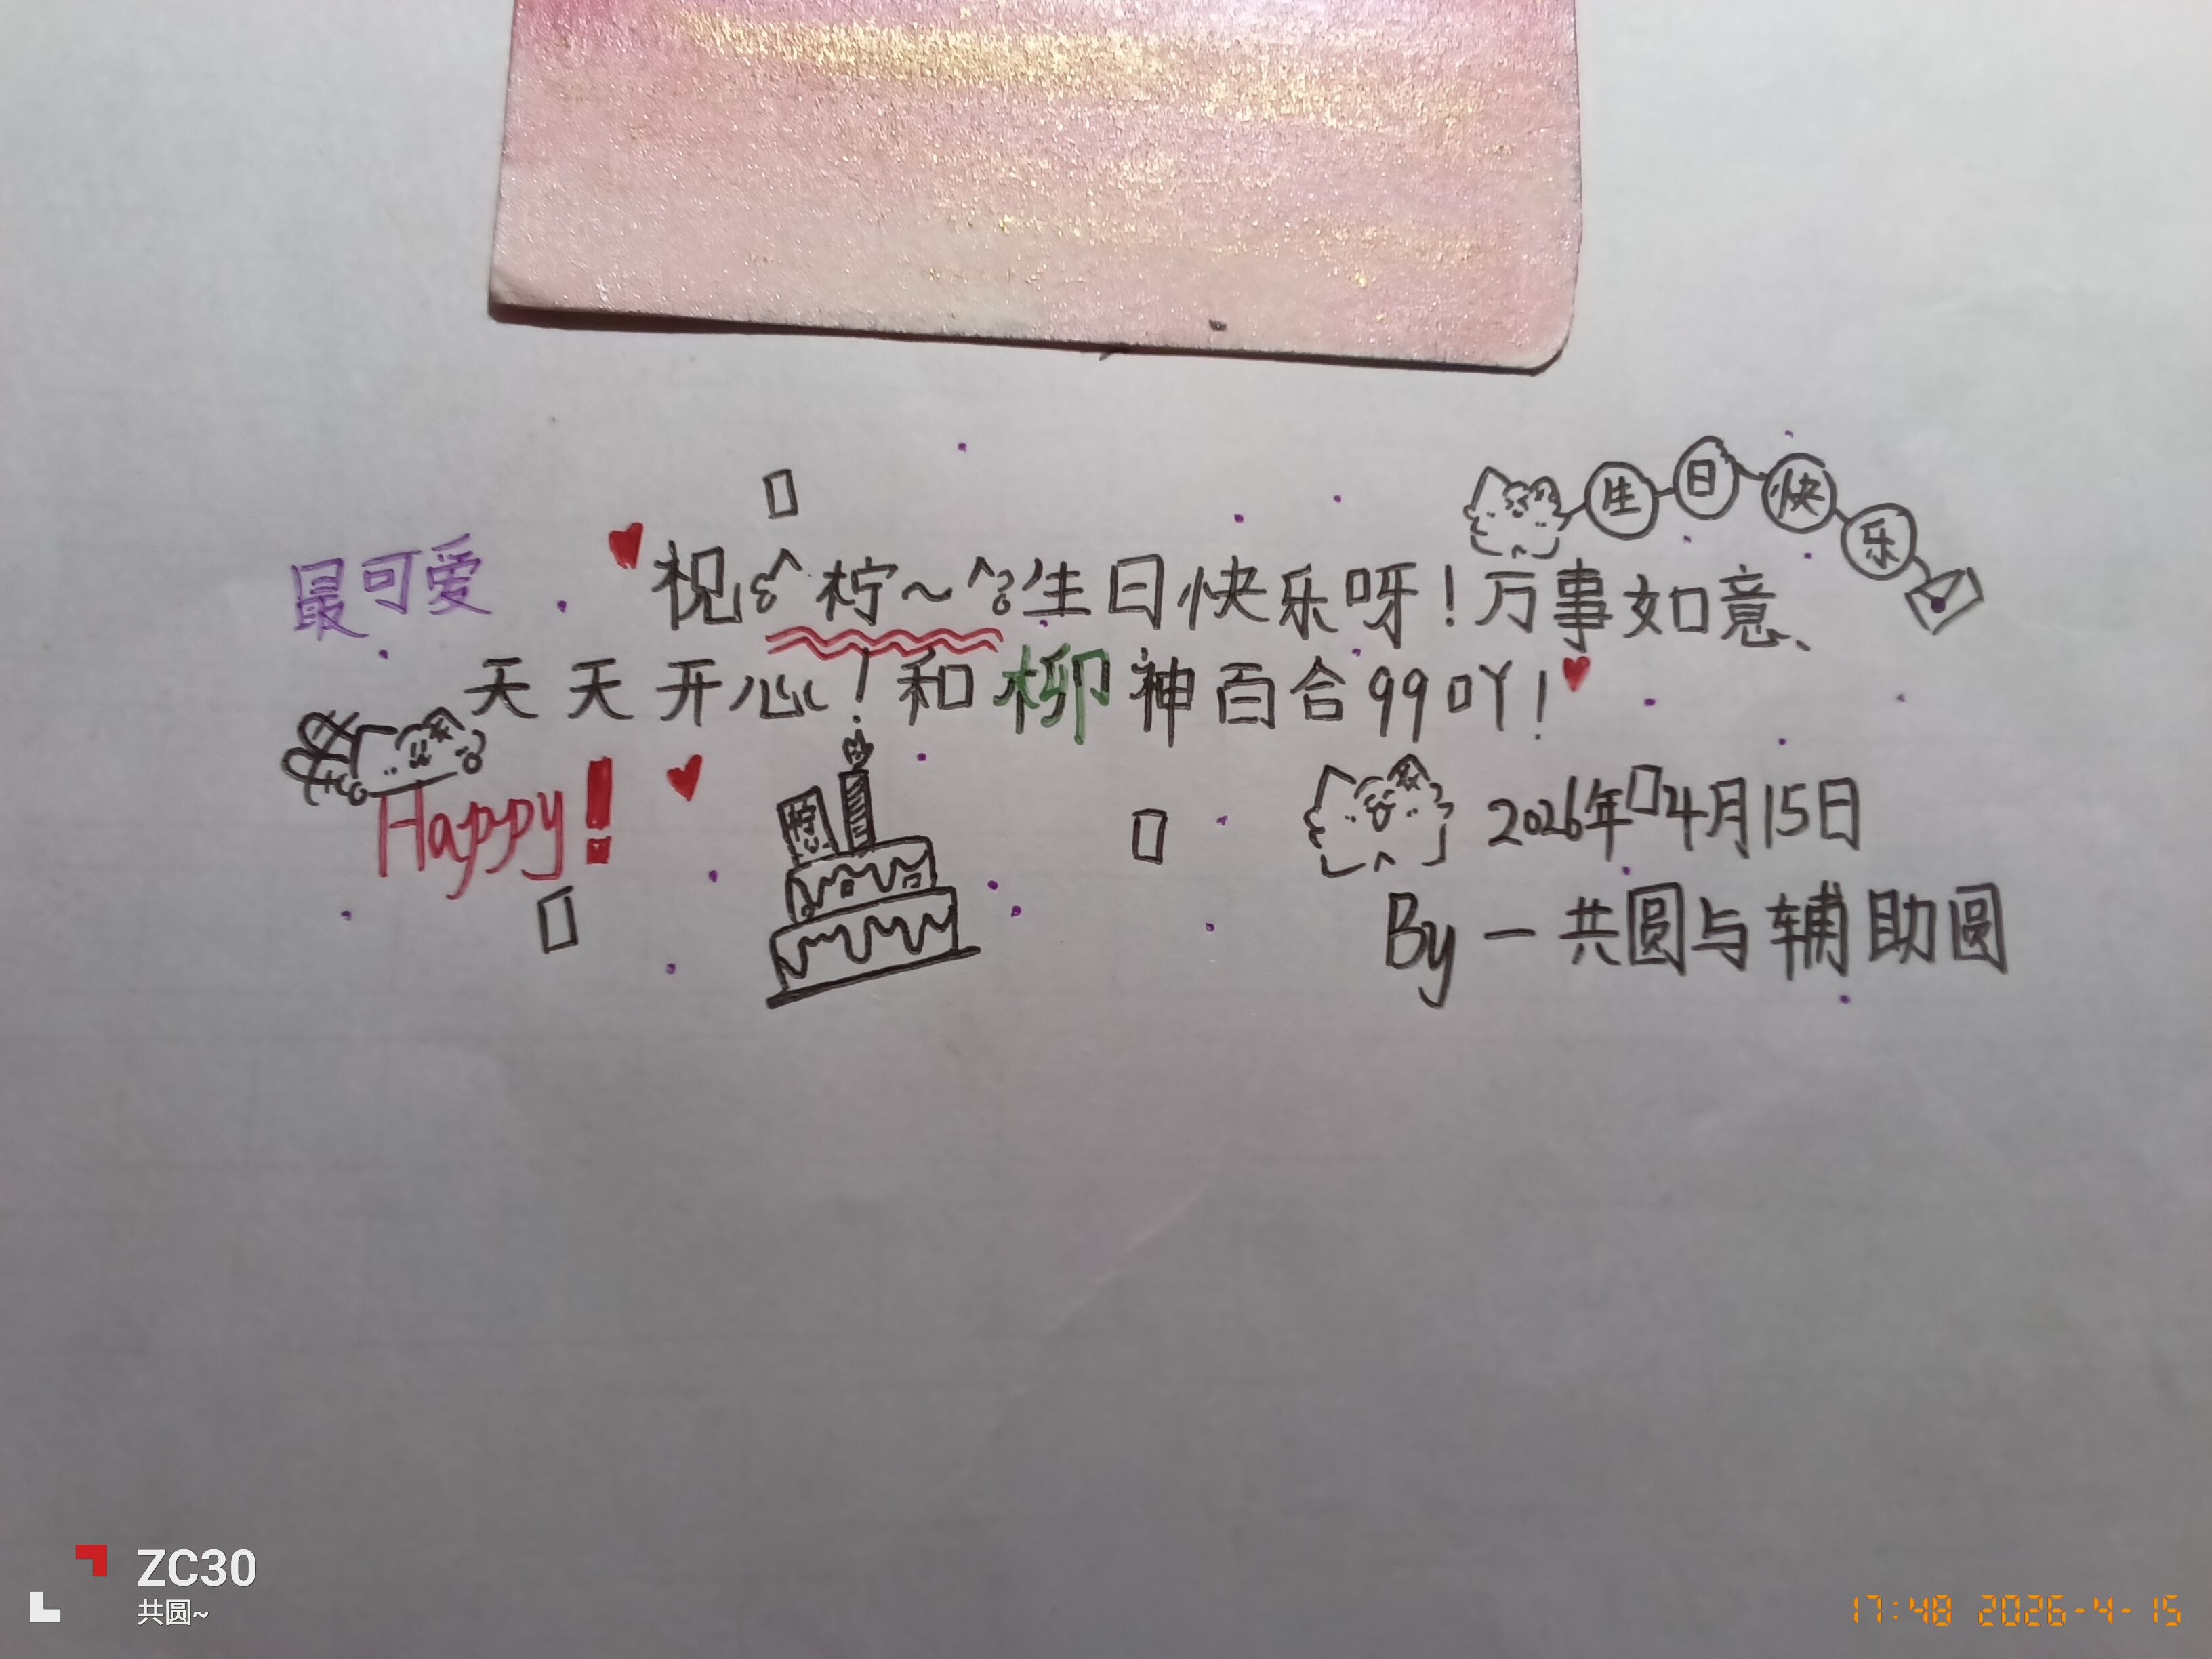 生日快乐
最可爱
祝ꉂ^柠~^ზ生日快乐呀！万事如意、
天天开心！和柳神百合99吖！
Happy!
2026年4月15日
By－共圆与辅助圆
ZC30
共圆~
17:48 2026-4-15